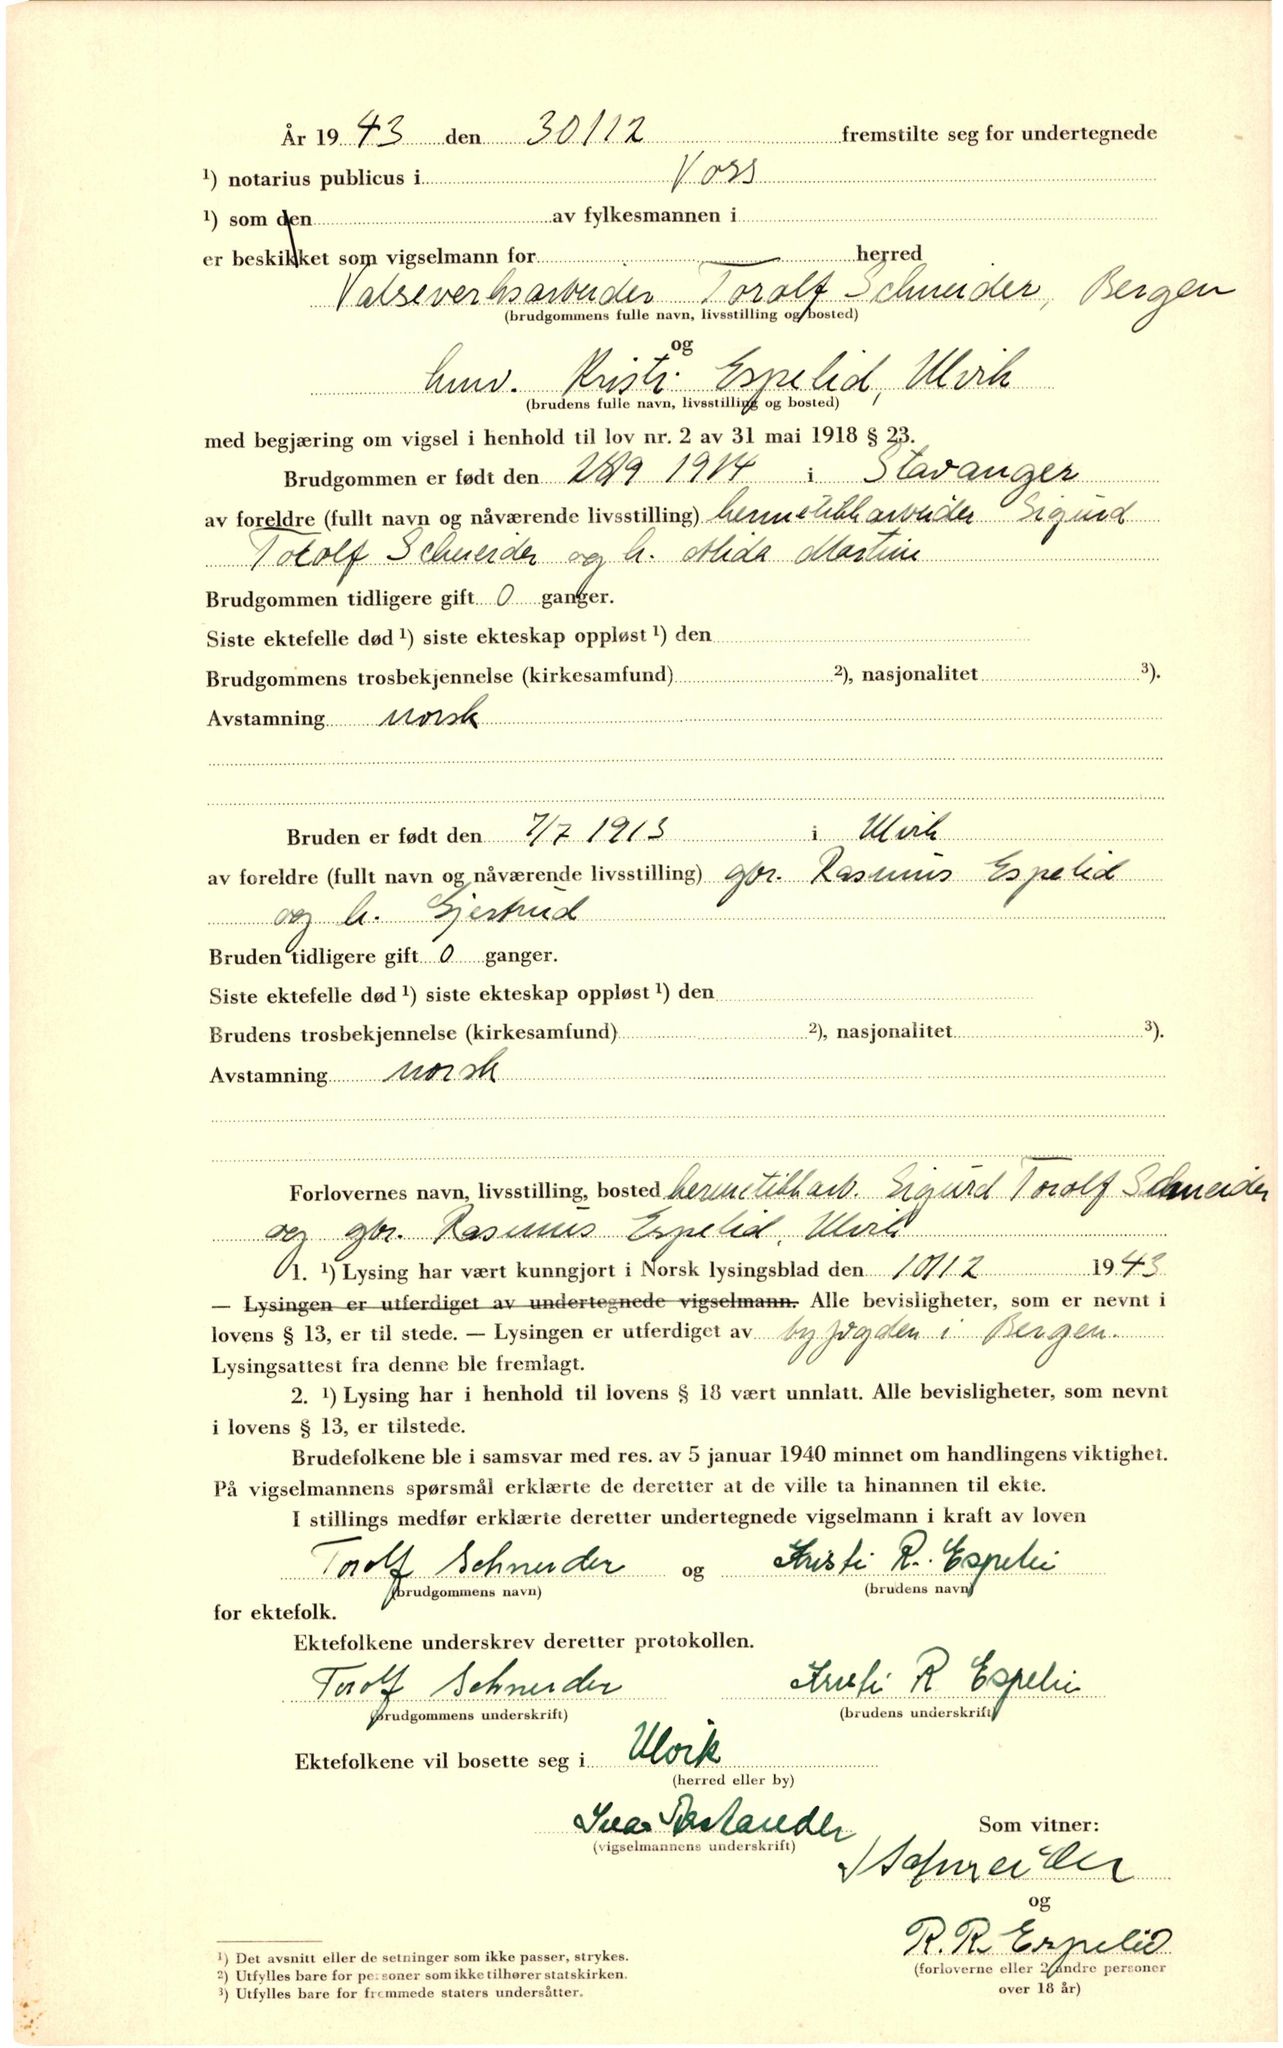 År 1943 den 30/12 fremstilte seg for undertegnede
¹) notarius publicus i Voss
¹) som den av fylkesmannen i
er beskikket som vigselmann for herred
Valseverksarbeider Torolf Schneider, Bergen
(brudgommens fulle navn, livsstilling og bosted)
og
hmv. Kristi Espelid, Ulvik
(brudens fulle navn, livsstilling og bosted)
med begjæring om vigsel i henhold til lov nr. 2 av 31 mai 1918 § 23.
Brudgommen er født den 1914 i Stavanger
av foreldre (fullt navn og nåværende livsstilling) hermetikkarbeider Sigurd
Torolf Schneider og h. Alida Martine
Brudgommen tidligere gift 0 ganger.
Siste ektefelle død ¹) siste ekteskap oppløst ¹) den
Brudgommens trosbekjennelse (kirkesamfund) ²), nasjonalitet ³).
Avstamning norsk
Bruden er født den 7/7 1913 i Ulvik
av foreldre (fullt navn og nåværende livsstilling) gbr. Rasmus Espelid
og h. Gjertrud
Bruden tidligere gift 0 ganger.
Siste ektefelle død ¹) siste ekteskap oppløst ¹) den
Brudens trosbekjennelse (kirkesamfund) ²), nasjonalitet ³).
Avstamning norsk
Forlovernes navn, livsstilling, bosted hermetikkarb. Sigurd Torolf Schneider
og gbr. Rasmus Espelid, Ulvik
1. ¹) Lysing har vært kunngjort i Norsk lysingsblad den 10/12 1943
— Lysingen er utferdiget av undertegnede vigselmann. Alle bevisligheter, som er nevnt i
lovens § 13, er til stede. — Lysingen er utferdiget av byfogden i Bergen.
Lysingsattest fra denne ble fremlagt.
2. ¹) Lysing har i henhold til lovens § 18 vært unnlatt. Alle bevisligheter, som nevnt
i lovens § 13, er tilstede.
Brudefolkene ble i samsvar med res. av 5 januar 1940 minnet om handlingens viktighet.
På vigselmannens spørsmål erklærte de deretter at de ville ta hinannen til ekte.
I stillings medfør erklærte deretter undertegnede vigselmann i kraft av loven
Torolf Schneider og Kristi R. Espelid
(brudgommens navn) (brudens navn)
for ektefolk.
Ektefolkene underskrev deretter protokollen.
Torolf Schneider Kristi R Espelid
(brudgommens underskrift) (brudens underskrift)
Ektefolkene vil bosette seg i Ulvik
(herred eller by)
Som vitner:
(vigselmannens underskrift)
Schneider
og
R. R. Espelid
(forloverne eller 2 andre personer
over 18 år)
¹) Det avsnitt eller de setninger som ikke passer, strykes.
²) Utfylles bare for personer som ikke tilhører statskirken.
³) Utfylles bare for fremmede staters undersåtter.